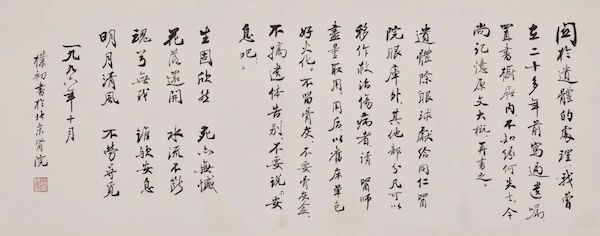 關於遺體的處理，我曾
在二十多年前寫過遺囑
置書櫥屜内不知緣何失去，今
尚記憶原文大概，再書之。
遺體除眼球獻給同仁醫
院眼庫外，其他部分凡可以
移作救治傷病者，請醫師
盡量取用，用后以舊床單包
好火化。不留骨灰，不要骨灰盒，
不搞遗体告别，不要说“安
息吧”。
生固欣然　死亦無憾
花落還開　水流不斷
魂兮無我　誰欤安息
明月清風　不勞尋覓
一九九六年十月
樸初書於北京醫院